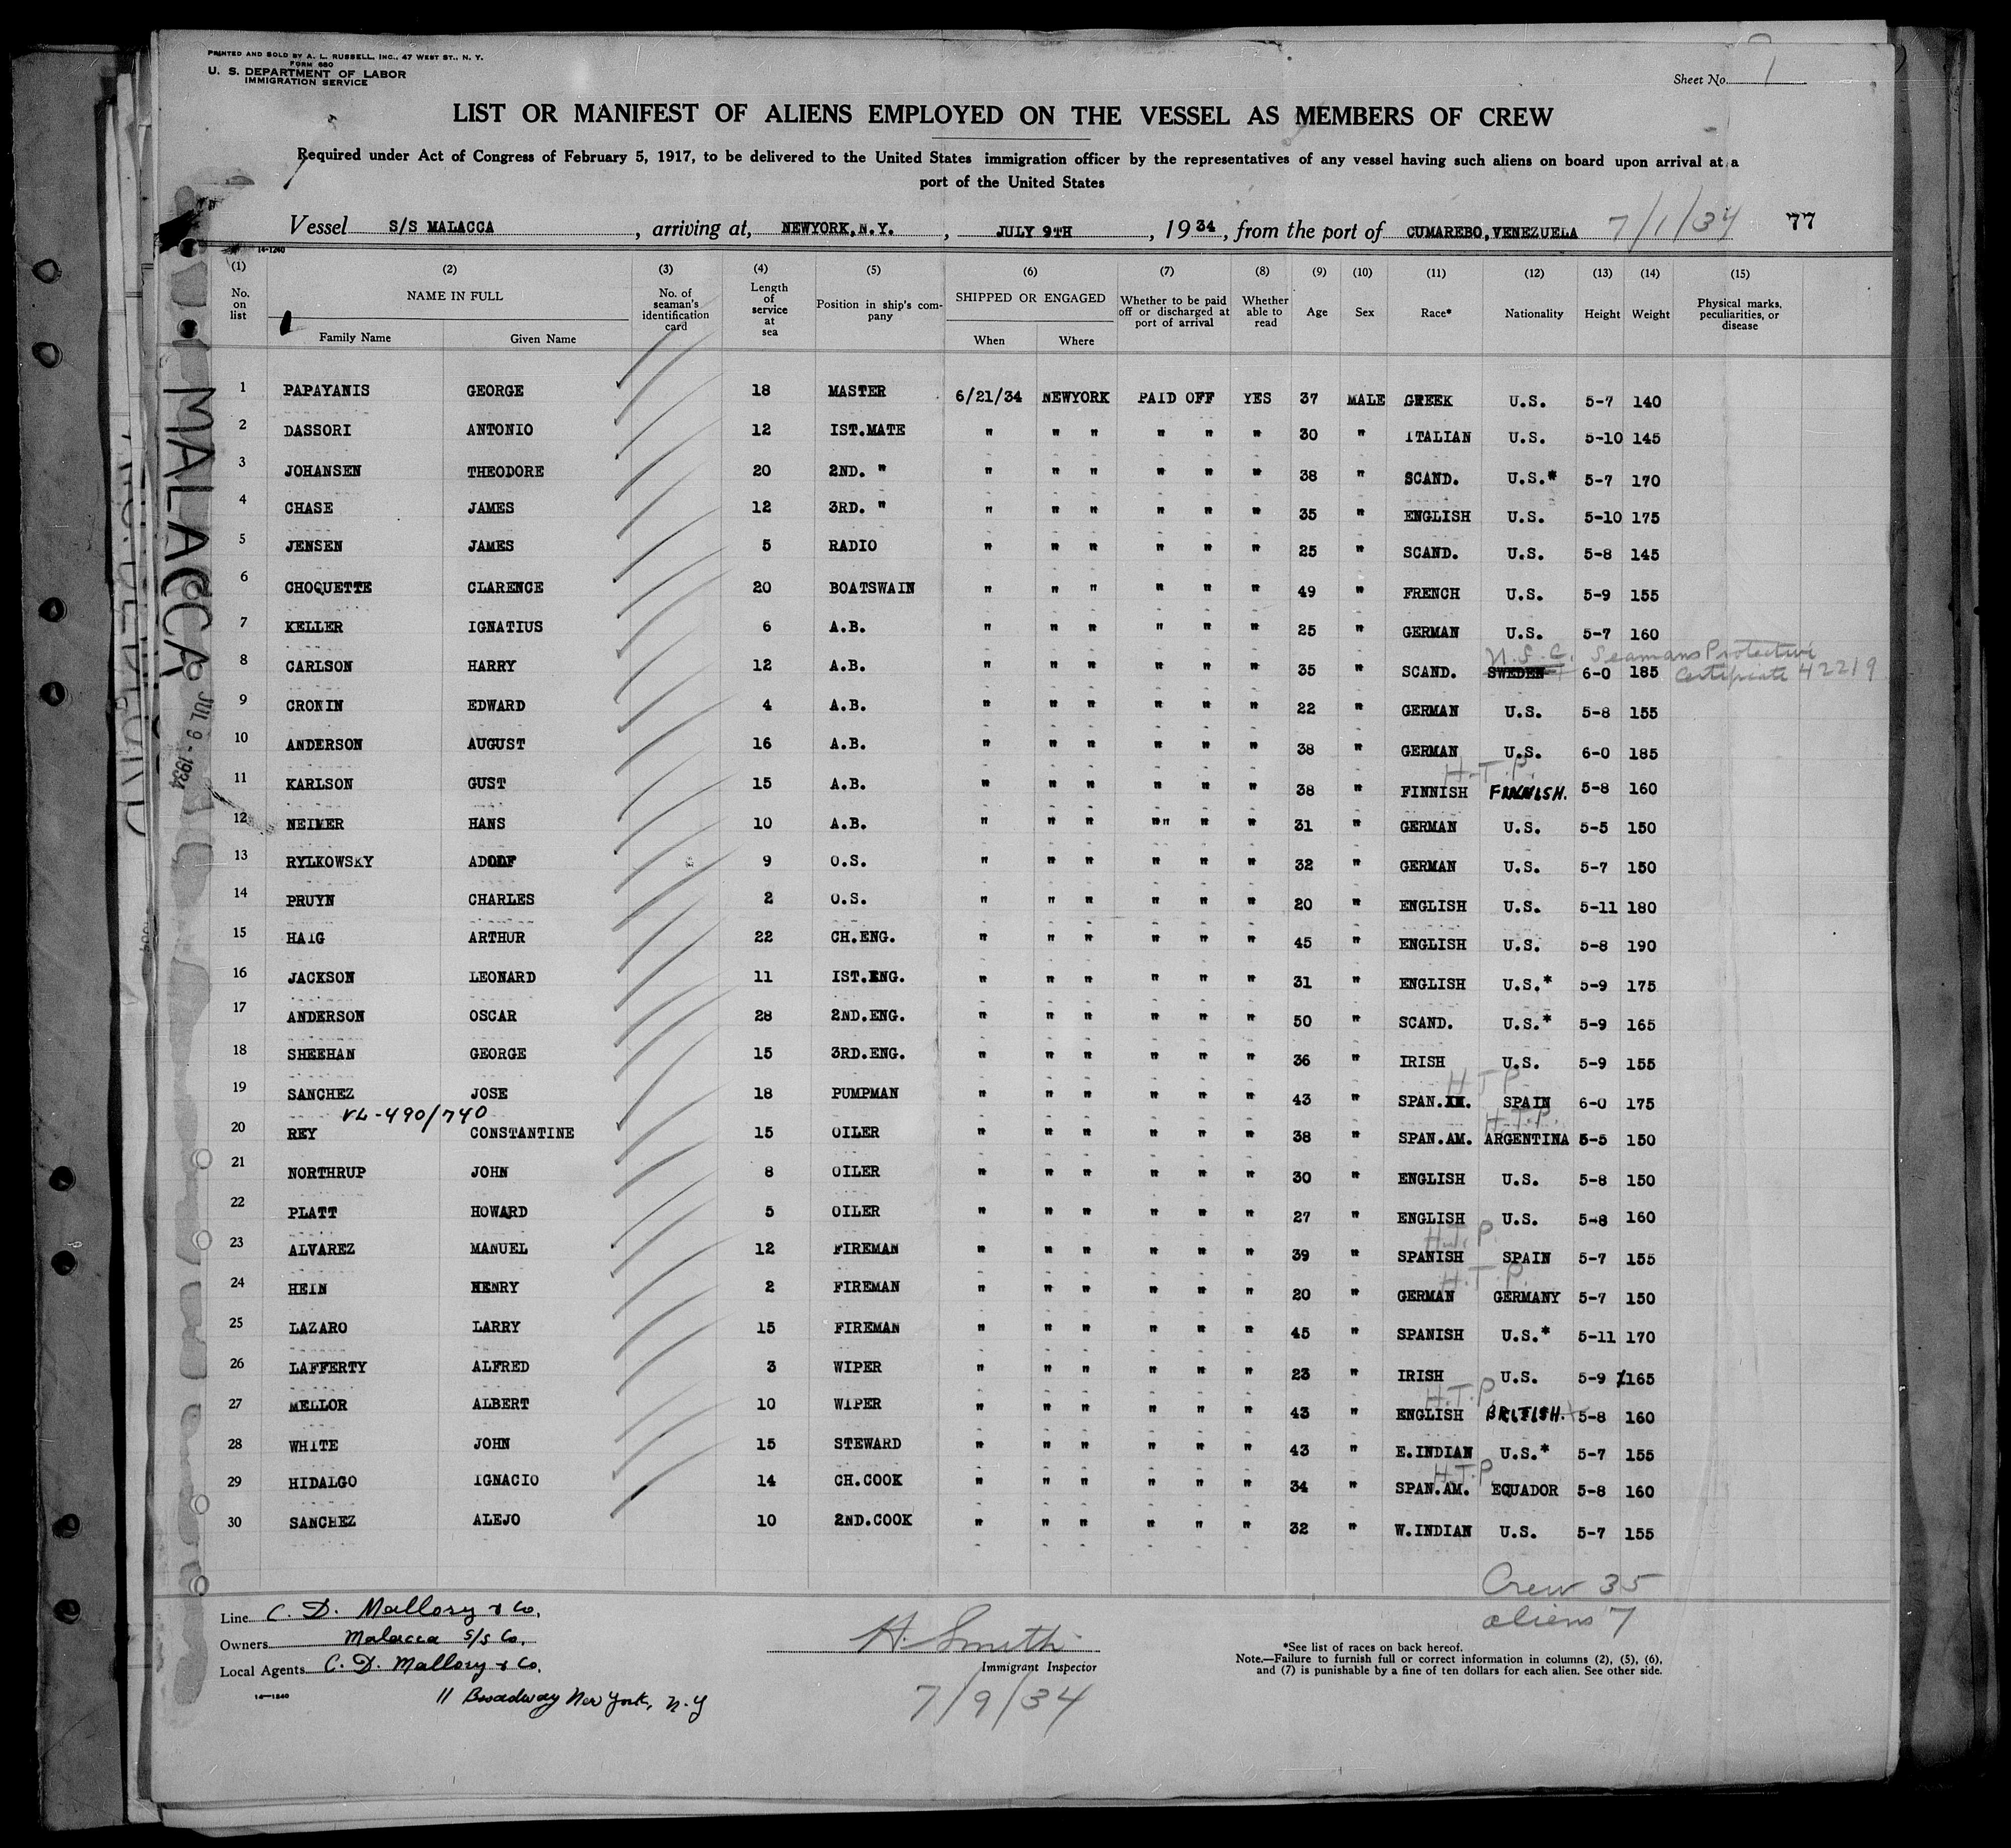 PRINTED AND SOLD BY A. L. RUSSELL, INC., 47 WEST ST., N. Y.
FORM 680
U. S. DEPARTMENT OF LABOR
IMMIGRATION SERVICE
Sheet No. 1
LIST OR MANIFEST OF ALIENS EMPLOYED ON THE VESSEL AS MEMBERS OF CREW
Required under Act of Congress of February 5, 1917, to be delivered to the United States immigration officer by the representatives of any vessel having such aliens on board upon arrival at a
port of the United States
Vessel S/S MALACCA , arriving at, NEWYORK,N.Y. , JULY 9TH , 19 34 , from the port of CUMAREBO,VENEZUELA 7/1/34 77
14-1240
(1) (2) (3) (4) (5) (6) (7) (8) (9) (10) (11) (12) (13) (14) (15)
No. on list NAME IN FULL Family Name Given Name No. of seaman's identification card Length of service at sea Position in ship's company SHIPPED OR ENGAGED When Where Whether to be paid off or discharged at port of arrival Whether able to read Age Sex Race* Nationality Height Weight Physical marks, peculiarities, or disease
1 PAPAYANIS GEORGE 18 MASTER 6/21/34 NEWYORK PAID OFF YES 37 MALE GREEK U.S. 5-7 140
2 DASSORI ANTONIO 12 IST.MATE " " " " " " 30 " ITALIAN U.S. 5-10 145
3 JOHANSEN THEODORE 20 2ND. " " " " " " " 38 " SCAND. U.S.* 5-7 170
4 CHASE JAMES 12 3RD. " " " " " " " 35 " ENGLISH U.S. 5-10 175
5 JENSEN JAMES 5 RADIO " " " " " " 25 " SCAND. U.S. 5-8 145
6 CHOQUETTE CLARENCE 20 BOATSWAIN " " " " " " 49 " FRENCH U.S. 5-9 155
7 KELLER IGNATIUS 6 A.B. " " " " " " 25 " GERMAN U.S. 5-7 160
8 CARLSON HARRY 12 A.B. " " " " " " 35 " SCAND. U.S.C. SWEDEN 6-0 185 Seamans Protective Certificate 42219
9 CRONIN EDWARD 4 A.B. " " " " " " 22 " GERMAN U.S. 5-8 155
10 ANDERSON AUGUST 16 A.B. " " " " " " 38 " GERMAN U.S. 6-0 185
11 KARLSON GUST 15 A.B. " " " " " " 38 " FINNISH H.T.P. FINNISH. 5-8 160
12 NEIMER HANS 10 A.B. " " " "" " " 31 " GERMAN U.S. 5-5 150
13 RYLKOWSKY ADOLF 9 O.S. " " " " " " 32 " GERMAN U.S. 5-7 150
14 PRUYN CHARLES 2 O.S. " " " " " " 20 " ENGLISH U.S. 5-11 180
15 HAIG ARTHUR 22 CH.ENG. " " " " " " 45 " ENGLISH U.S. 5-8 190
16 JACKSON LEONARD 11 IST.ENG. " " " " " " 31 " ENGLISH U.S.* 5-9 175
17 ANDERSON OSCAR 28 2ND.ENG. " " " " " " 50 " SCAND. U.S.* 5-9 165
18 SHEEHAN GEORGE 15 3RD.ENG. " " " " " " 36 " IRISH U.S. 5-9 155
19 SANCHEZ JOSE 18 PUMPMAN " " " " " " 43 " SPAN. H.T.P. SPAIN 6-0 175
VL-490/740
20 REY CONSTANTINE 15 OILER " " " " " " 38 " SPAN.AM. H.T.P. ARGENTINA 5-5 150
21 NORTHRUP JOHN 8 OILER " " " " " " 30 " ENGLISH U.S. 5-8 150
22 PLATT HOWARD 5 OILER " " " " " " 27 " ENGLISH U.S. 5-8 160
23 ALVAREZ MANUEL 12 FIREMAN " " " " " " 39 " H.T.P. SPANISH SPAIN 5-7 155
24 HEIN HENRY 2 FIREMAN " " " " " " 20 " H.T.P. GERMAN GERMANY 5-7 150
25 LAZARO LARRY 15 FIREMAN " " " " " " 45 " SPANISH U.S.* 5-11 170
26 LAFFERTY ALFRED 3 WIPER " " " " " " 23 " IRISH U.S. 5-9 165
27 MELLOR ALBERT 10 WIPER " " " " " " 43 " H.T.P. ENGLISH BRITISH. 5-8 160
28 WHITE JOHN 15 STEWARD " " " " " " 43 " E.INDIAN U.S.* 5-7 155
29 HIDALGO IGNACIO 14 CH.COOK " " " " " " 34 " H.T.P. SPAN.AM. EQUADOR 5-8 160
30 SANCHEZ ALEJO 10 2ND.COOK " " " " " " 32 " W.INDIAN U.S. 5-7 155
MALACCA
JUL 9 - 1934
Crew 35
aliens 7
Line C. D. Mallory & Co.
Owners Malacca S/S Co.
Local Agents C. D. Mallory & Co.
11 Broadway New York, N.Y
14-1240
H. Smith
Immigrant Inspector
7/9/34
*See list of races on back hereof.
Note.—Failure to furnish full or correct information in columns (2), (5), (6),
and (7) is punishable by a fine of ten dollars for each alien. See other side.